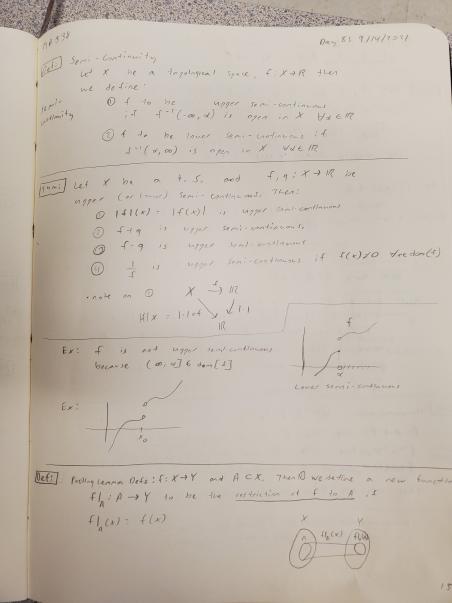 Day 8: 9/14/2021
Def: Semi-Continuity
Let X be a topological space, f: X→ℝ then
we define:
① f to be upper semi-continuous
if f⁻¹(-∞, α) is open in X ∀α∈ℝ
semi-
continuity
② f to be lower semi-continuous if
f⁻¹(α, ∞) is open in X ∀α∈ℝ
Let X be a t.s. and f, g: X→ℝ be
upper (or lower) semi-continuous. Then:
① |f|(x) = |f(x)| is upper semi-continuous
② f+g is upper semi-continuous.
③ f-g is upper semi-continuous
④ 1/f is upper semi-continuous if f(x)≠0 ∀x∈dom(f)
• note on ①
X f→ ℝ
|f|x = |·|∘f |·|
ℝ
f
α
Lower semi-continuous
Ex: f is not upper semi-continuous
because (∞, α] ∈ dom[f]
Ex:
x₀
Def: Pasting Lemma Defs: f: X→Y and A⊂X. Then we define a new function
f|_A : A → Y to be the restriction of f to A, if
f|_A(x) = f(x)
X Y
f|_A(x)